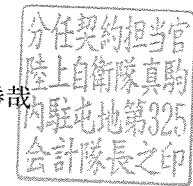 分任契約担当官
陸上自衛隊真駒
内駐屯地第325
会計隊長之印
哉